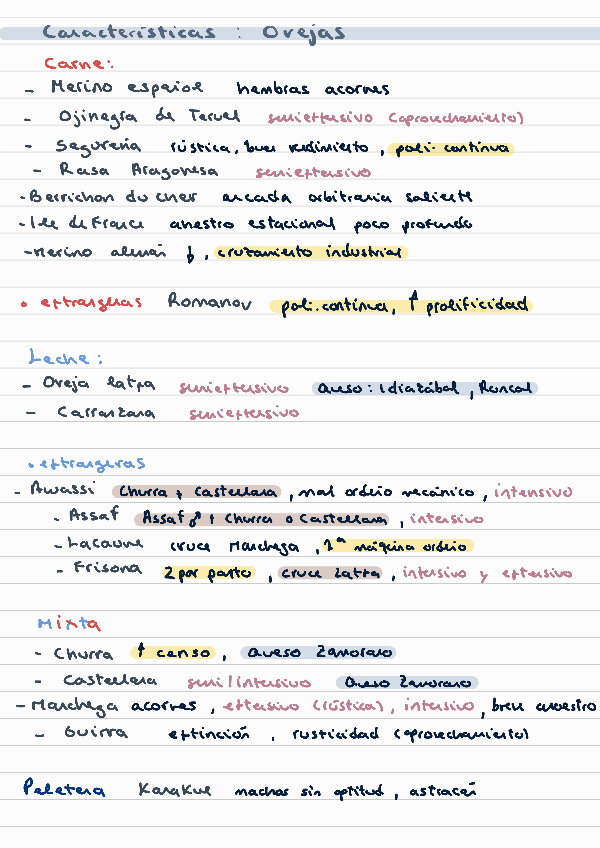 Características : Ovejas
Carne:
- Merino español hembras acornes
- Ojinegra de Teruel semiextensivo (aprovechamiento)
- Segureña rústica, buen rendimiento, poli. continua
- Rasa Aragonesa semiextensivo
- Berrichon du cher arcada orbitraria saliente
- Ile de France anestro estacional poco profundo
- Merino alemán ↓, cruzamiento industrial
• extrangeras Romanov poli. continua, ↑ prolificidad
Leche:
- Oveja latxa semiextensivo Queso: Idiazábal, Roncal
- Carranzana semiextensivo
• extrangeras
- Awassi Churra + Castellana, mal ordeño mecánico, intensivo
- Assaf Assaf ♂ + Churra o Castellana, intensivo
- Lacaune cruce Manchega, 1ª máquina ordeño
- Frisona 2 por parto, cruce latxa, intensivo y extensivo
Mixta
- Churra ↑ censo, Queso Zamorano
- Castellana semi/intensivo Queso Zamorano
- Manchega acornes, extensivo (rústica), intensivo, breu anoestro
- Guirra extinción, rusticidad (aprovechamiento)
Peletera Karakul machos sin aptitud, astracán